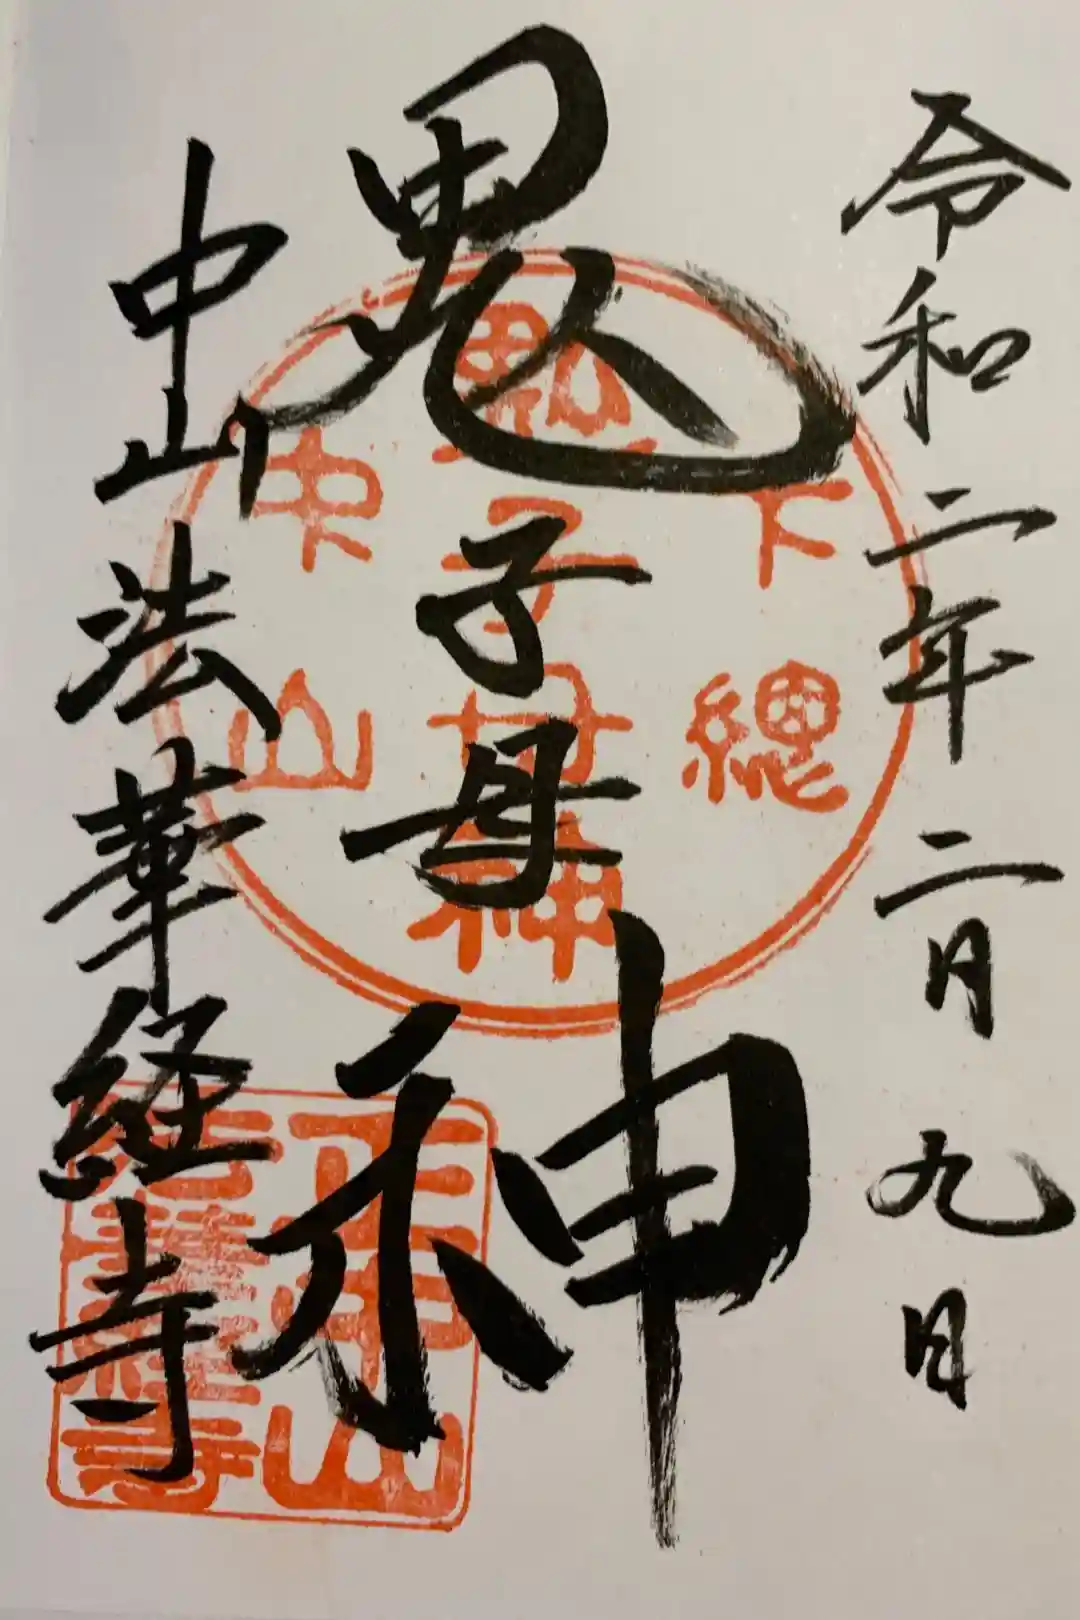 令和二年二月九日
鬼子母神
中山法華経寺
下總
鬼子母神
中山
正中山
法華経寺